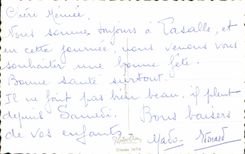 Chère Mémée.
Nous sommes toujours à Lasalle, et
en cette journée, nous venons vous
souhaiter une bonne fête.
Bonne santé surtout.
Il ne fait pas bien beau, il pleut
depuis Samedi. Bons baisers
de vos enfants
Mado -